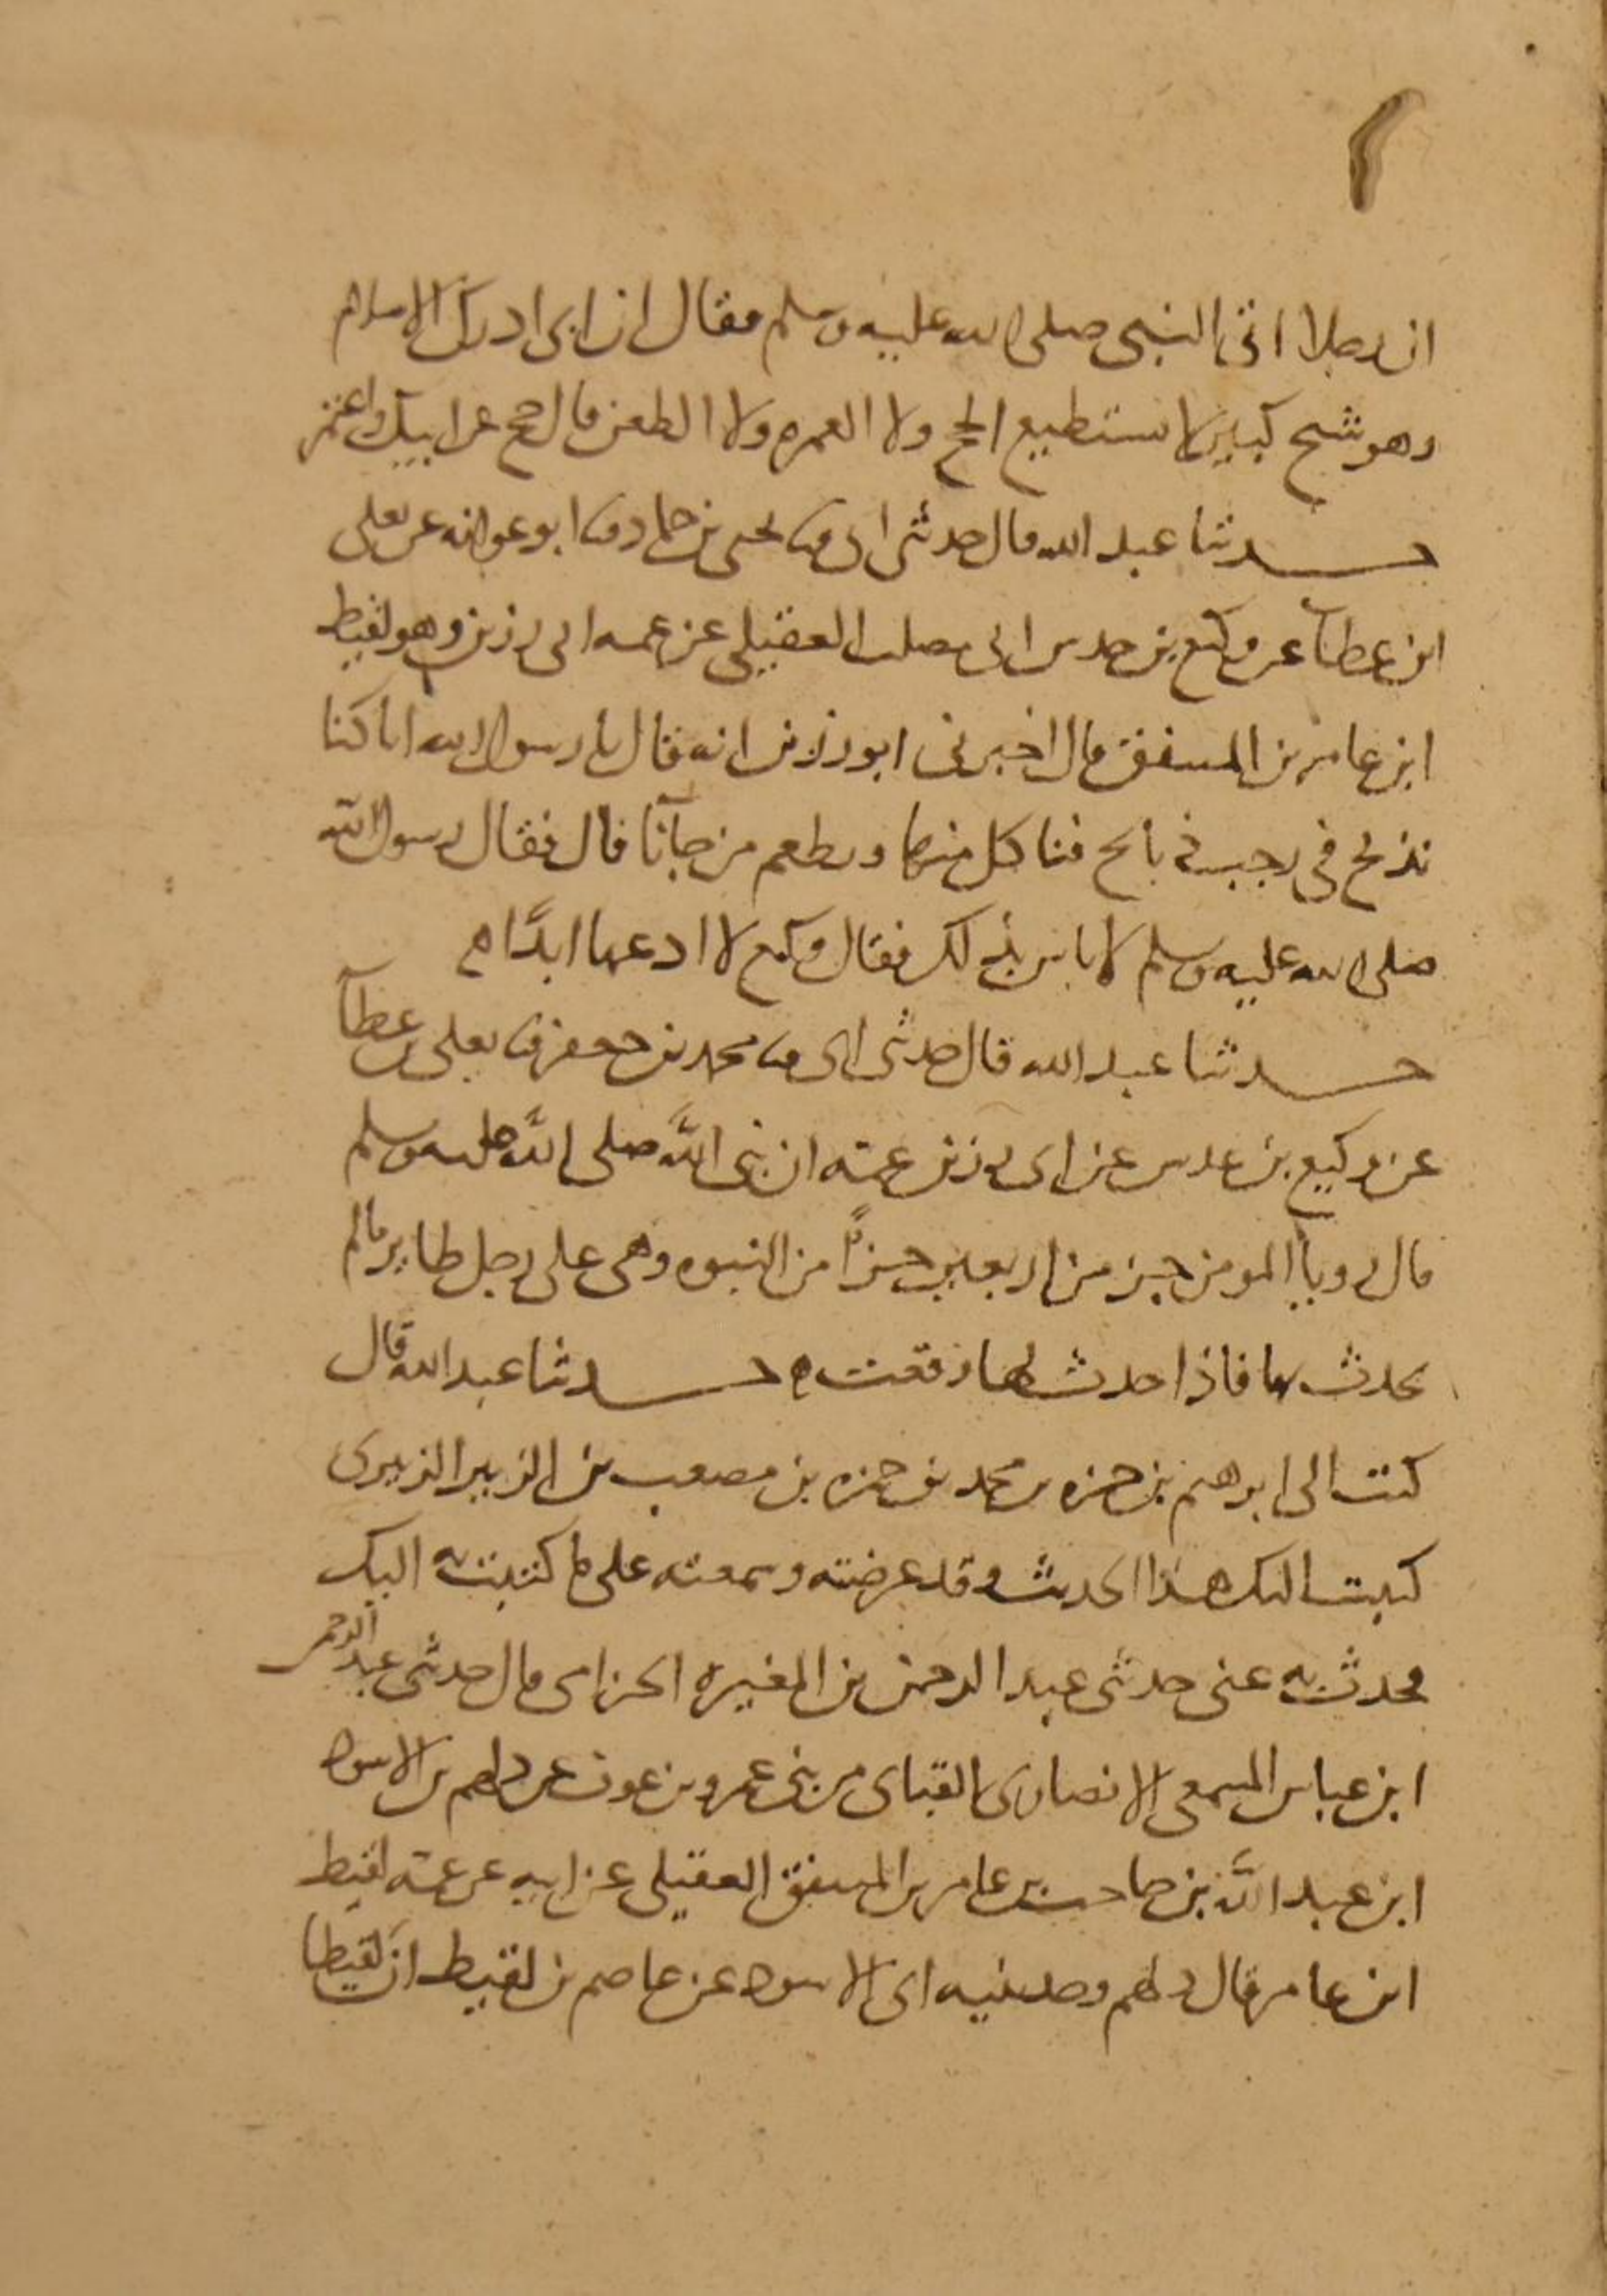 ان رجلا اتى النبى صلى الله عليه وسلم فقال ان ابى ادرك الاسلام
وهو شيخ كبير لا يستطيع الحج ولا العمره ولا الطعن قال حج عن ابيك واعتمر
حدثنا عبد الله قال حدثنى ابى ثنا يحيى بن حماد ثنا ابو عوانه عن يعلى
ابن عطآ عن وكيع بن حدس ابى مصلب العقيلى عن عمه ابى رزين وهو لقيط
ابن عامر بن المنتفق قال اخبرنى ابو رزين انه قال يا رسول الله انا كنا
نذبح فى رجب ذبائح فناكل منها ونطعم من جآنا قال فقال رسول الله
صلى الله عليه وسلم لا باس بذلك فقال وكيع لا ادعها ابدًا ه
حدثنا عبد الله قال حدثنى ابى ثنا محمد بن جعفر ثنا يعلى بن عطآ
عن وكيع بن عدس عن ابى رزين عمه ان نبى الله صلى الله عليه وسلم
قال رويا المومن جز من اربعين جزًا من النبوه وهى على رجل طاير ما لم
يحدث بها فاذا حدث بها وقعت ه حدثنا عبد الله قال
كتب الى ابرهيم بن حمزه بن محمد بن حمزه بن مصعب بن الزبير الزبيرى
كتبت اليك هذا الحديث وقد عرضته وسمعته على ما كتبت به اليك
فحدث به عنى حدثنى عبد الرحمن بن المغيره الحزامى قال حدثنى عبد الرحمن
ابن عياش السمعى الانصارى القباى من بنى عمرو بن عوف عن دلهم بن الاسود
ابن عبد الله بن حاجب بن عامر بن المنتفق العقيلى عن ابيه عن عمه لقيط
ابن عامر قال دلهم وحدثنيه ابى الاسود عن عاصم بن لقيط ان لقيطا